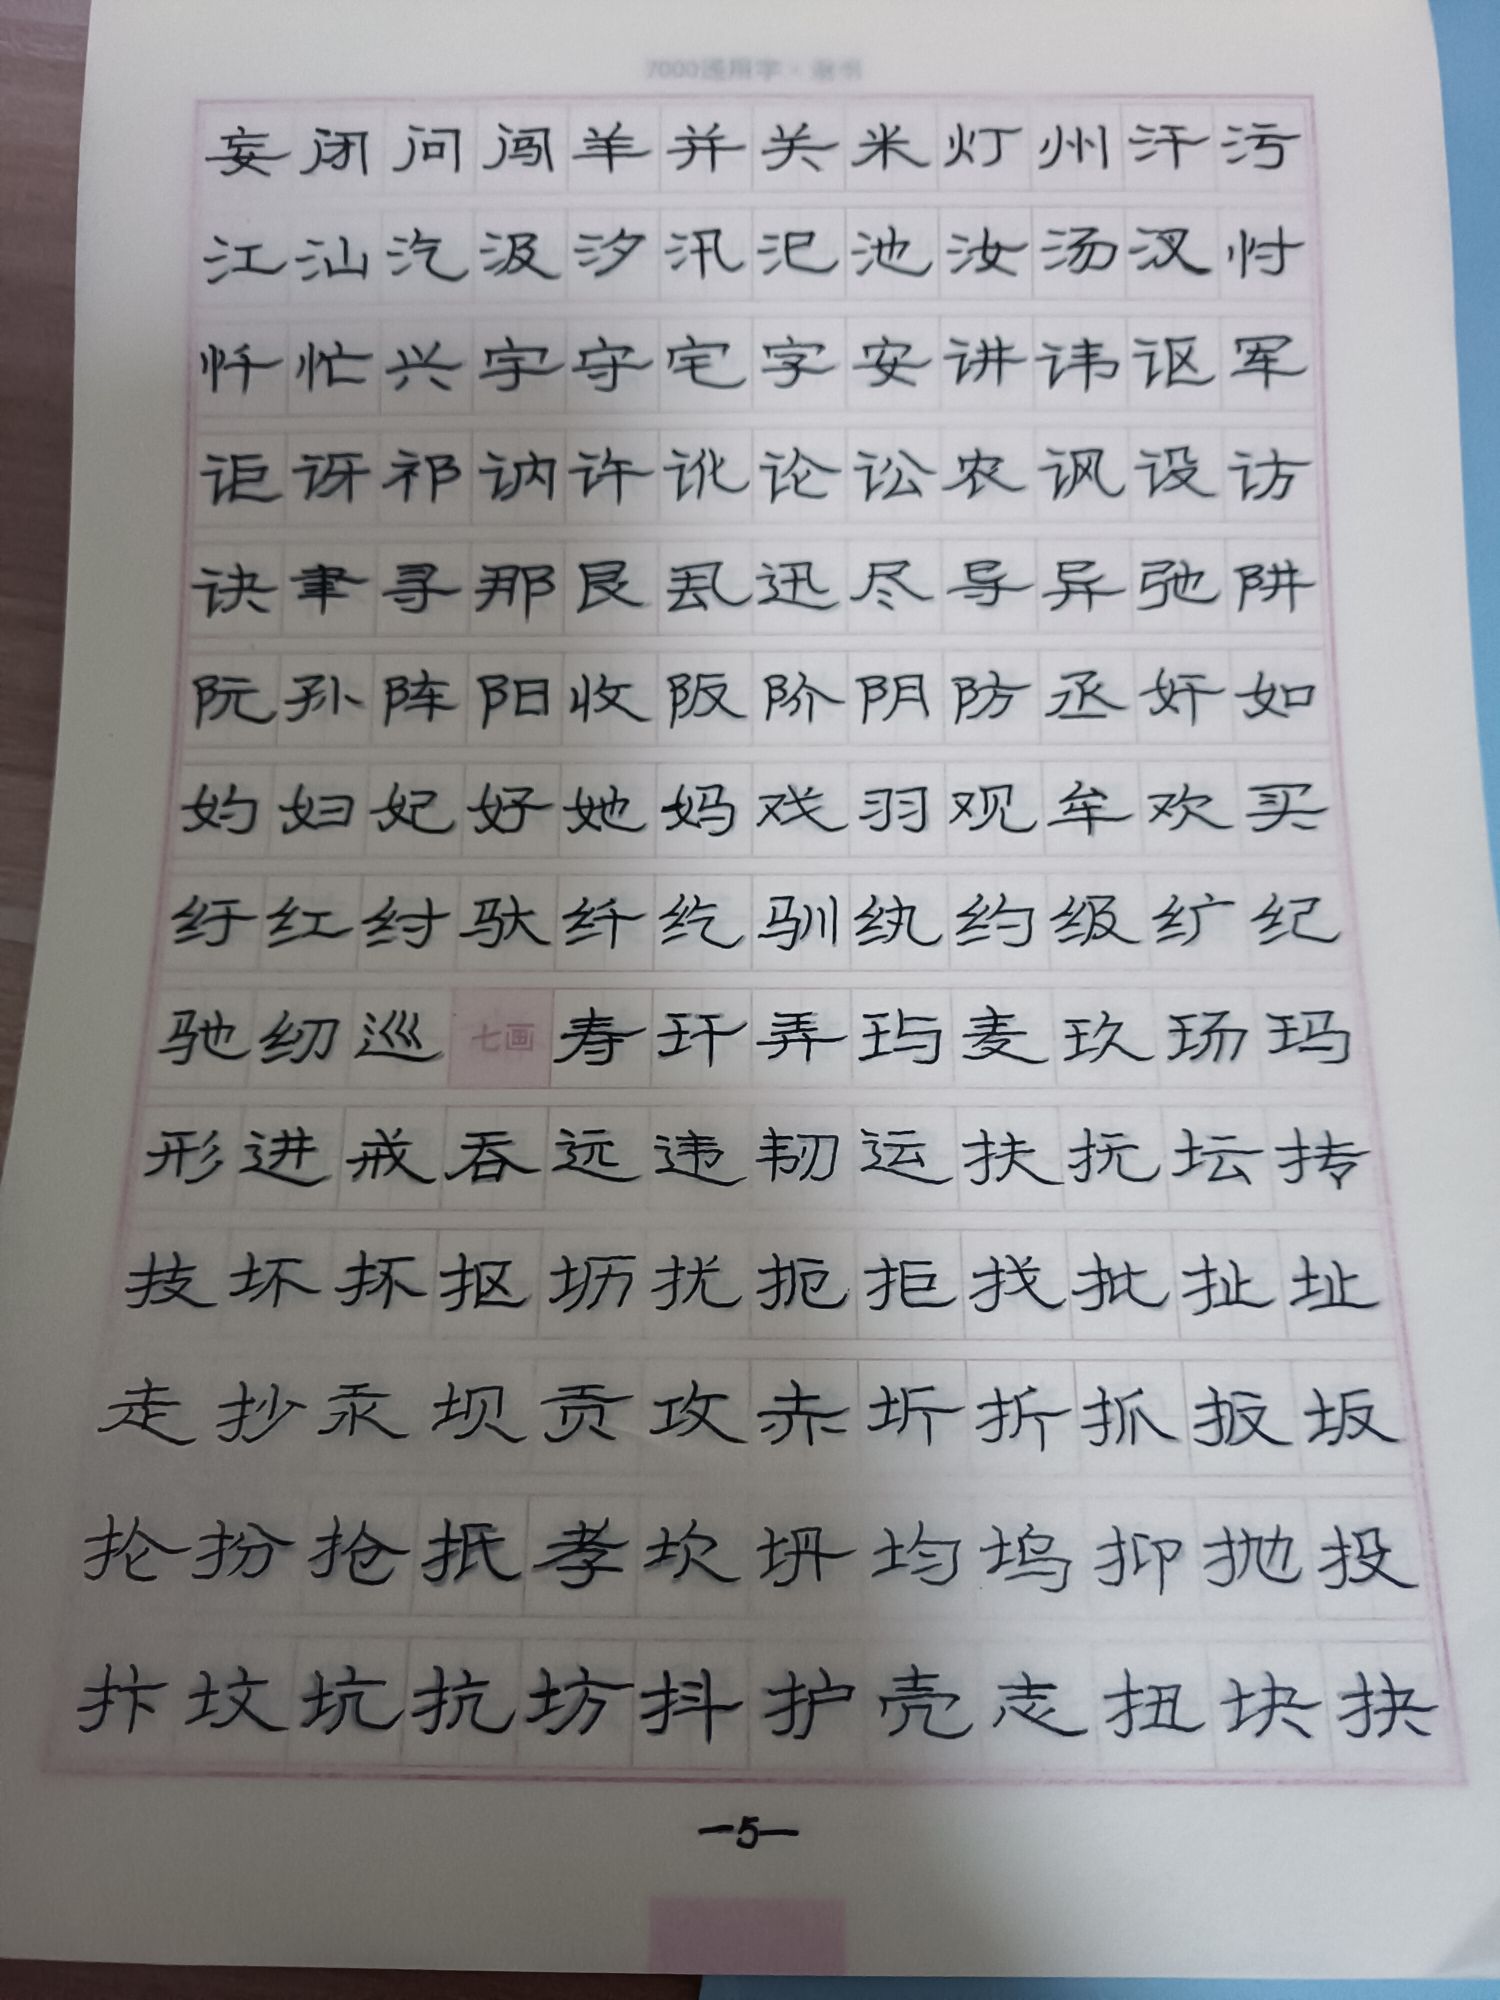 7000通用字·隶书
妄闭问闯羊并关米灯州汗污
江汕汔汲汐汛汜池汝汤汊忖
忏忙兴宇守宅字安讲讳讴军
讵讶祁讷许讹论讼农讽设访
诀聿寻那艮厾迅尽导异弛阱
阮孙阵阳收阪阶阴防丞奸如
妁妇妃好她妈戏羽观牟欢买
纡红纣驮纤纥驯纨约级纩纪
驰纫巡七画寿玕弄玙麦玖玚玛
形进戒吞远违韧运扶抚坛抟
技坏抔抠坜扰扼拒找批扯址
走抄汞坝贡攻赤圻折抓扳坂
抡扮抢抵孝坎坍均坞抑抛投
抃坟坑抗坊抖护壳志扭块抉
—5—